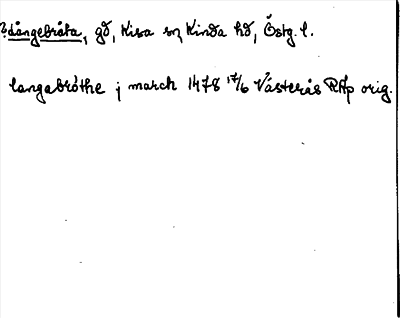 ?dångebråta, gd, Kisa sn, Kinda hd, Östg. l.
langabróthe j march 1478 17/6 Västerås RAp orig.